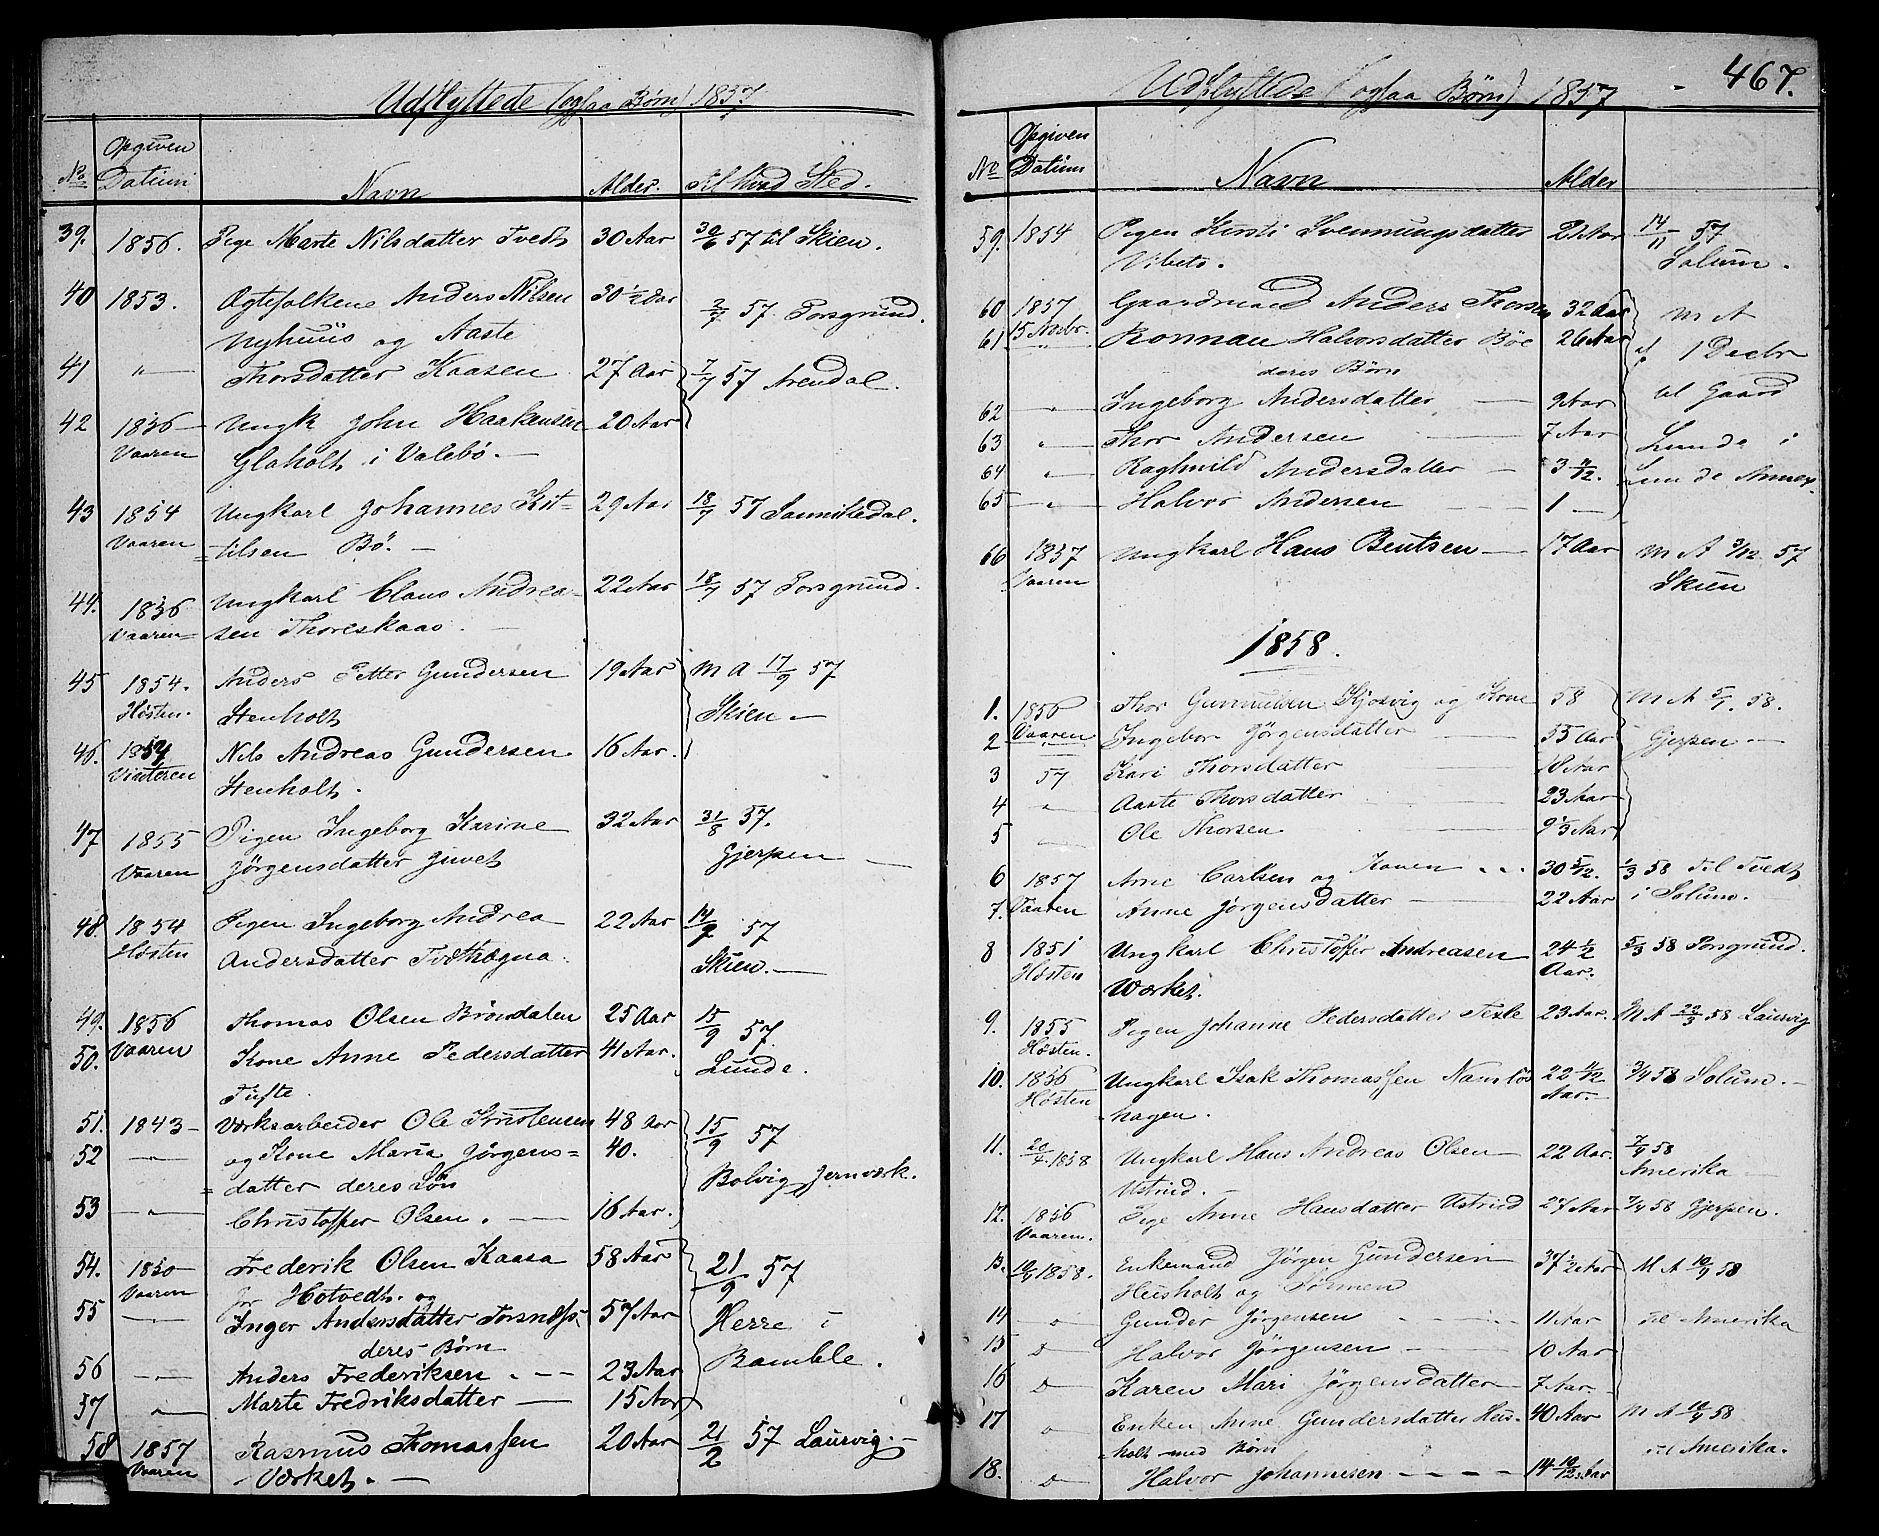 Udflyttede (ogsaa Børn) 1857
No Opgiven Datum Navn Alder. Til hvad Sted.
39. 1856. Pige Marte Nilsdatter Tvedt 30 Aar 30/6 57 til Skien.
40 1853. Ægtefolkene Anders Nilsen 30 1/2 Aar 2/7 57 Porsgrund.
Nyhuus og Aaste
41 " Thorsdatter Kaasen 27 Aar 7/7 57 Arendal.
42 1856 Ungk John Haakensen 20 Aar
Vaaren Glaholt i Valebö.
43 1854 Ungkarl Johannes Kit- 29 Aar 18/7 57 Sannikedal.
Vaaren =tilsen Bö.
44. 1856 Ungkarl Claus Andrea- 22 Aar 18/7 57 Porsgrund.
Vaaren sen Thoreskaas.
45 1854. Anders Petter Gundersen 19 Aar M A 17/9 57
Høsten. Stenholt Skien
46. 1854 Nils Andreas Gundersen 16 Aar.
Vinteren Stenholt.
47 1855 Pigen Ingeborg Karine 32 Aar 31/8 57.
Vaaren Jørgensdatter Juvet Gjerpen
48. 1854 Pigen Ingeborg Andrea 22 Aar 14/9 57
Høsten Andersdatter Skien.
49. 1856 Thomas Olsen Bröndalen 25 Aar 15/9 57.
50. Vaaren Kone Anne Pedersdatter 41 Aar. Lunde.
Tufte.
51. 1843 Værksarbeider Ole Kristensen 48 Aar 15/9 57
52 " og Kone Maria Jörgens= 40.
=datter deres Sön Bolvig Jernværk.
53 " Christoffer Olsen. 16 Aar.
54. 1850 Frederik Olsen Kaasa 58 Aar 21/9 57
Vaaren for Hotvedt. og
55 Inger Andersdatter 57 Aar Herre i
deres Børn
56 " Anders Frederiksen 23 Aar Bamble.
57 " Marte Fredriksdatter 15 Aar
58 1857 Rasmus Thomassen 20 Aar 21/2 57 Laurvig.
Vaaren Værket.
Udflyttede (ogsaa Børn) 1857 - 467.
No Opgiven Datum Navn Alder
59. 1854 Pigen Kirsti Svennungsdatter 21 Aar 14/11 57
Vibeto. Solum.
60 1857 Gaardmand Anders Thorsen 32 Aar M A
61 15 Novbr. Ronnau Halvorsdatter Böe 26 Aar af 1 Decbr
deres Børn
62 " Ingeborg Andersdatter 9 Aar til Gaard
63 " Thor Andersen 7 Aar Lunde i
64 " Raghnild Andersdatter 3 Lunde Annex.
65 " Halvor Andersen 1
66 1857 Ungkarl Hans Bentsen 17 Aar M A 3/12 57
Vaaren Skien
1858.
1. 1856 Thor Gunnulsen og Kone 58 M A 5/1 58.
2 Vaaren Ingebor Jörgensdatter 55 Aar Gjerpen
3 57 Kari Thorsdatter 18 Aar
4 " Aaste Thorsdatter 23 Aar
5 Ole Thorsen 9 1/3 Aar
6 1857 Arne Carlsen og Konen 30 5/12. 1/3 58 Til Tvedt
7. Vaaren Anne Jörgensdatter 22 Aar i Solum.
8 1851 Ungkarl Christoffer Andreasen 24 1/2 5/3 58 Porsgrund.
Høsten Værket. Aar.
9. 1855 Pigen Johanne Pedersdatter 23 Aar. M A 20/3 58 Laurvig
Høsten.
10. 1856 Ungkarl Isak Thomassen Namlös 22 3/4 58 Solum.
Høsten -hagen. Aar.
11. 20/4 1858 Ungkarl Hans Andreas Olsen 22 Aar. 7/4 58
Ustrud. Amerika
12. 1856 Pige Anne Hansdatter Ustrud 27 Aar 7/4 58 Gjerpen.
Vaaren.
13. 10/4 1858. Enkemand Jörgen Gundersen 37 1/2 Aar M A 10/4 58
Heisholt og Børnene
14 " Gunder Jörgensen 11 Aar til Amerika
15 " Halvor Jörgensen 10 Aar
16 " Karen Mari Jörgensdatter 7 Aar
17 " Enken Anne Gundersdatter Heis- 40 Aar M A 10/4 58
=holt med Børn til Amerika.
18. " Halvor Johannesen 14 10/12 Aar